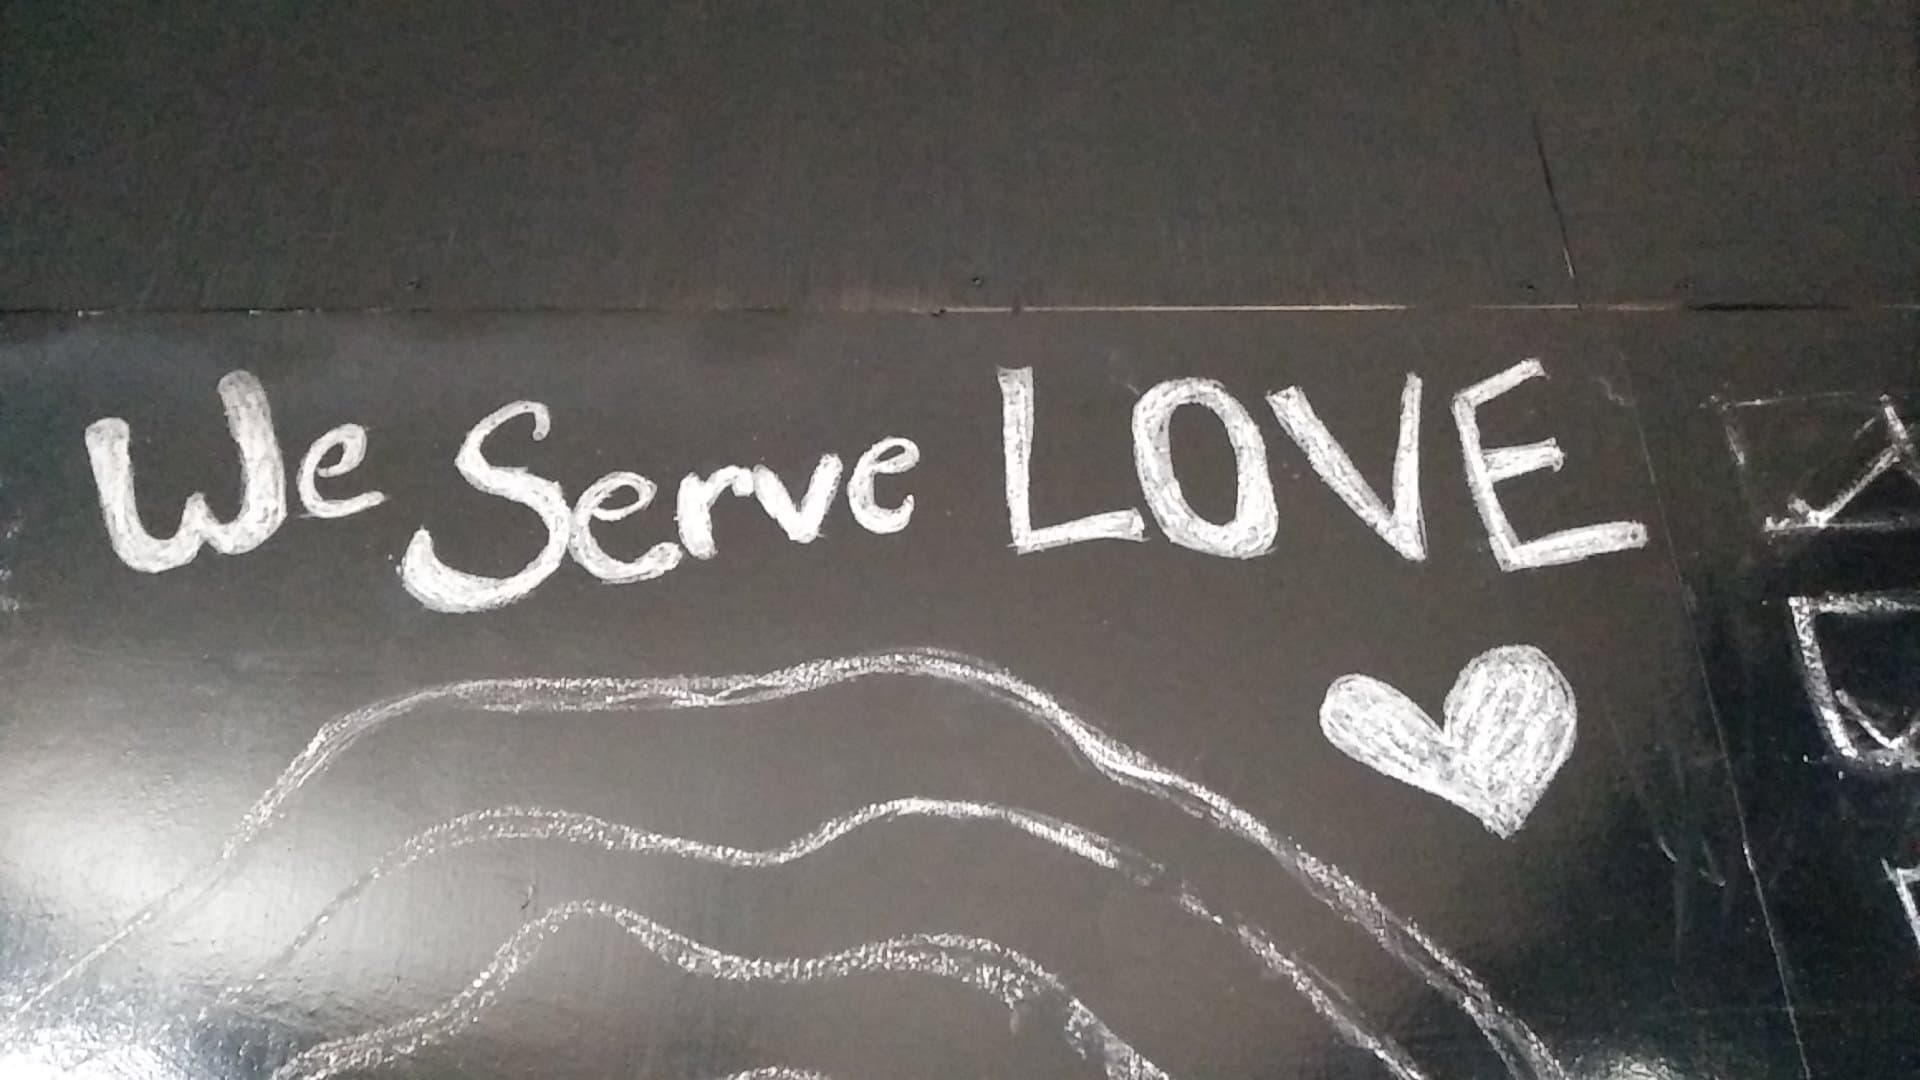 We Serve LOVE